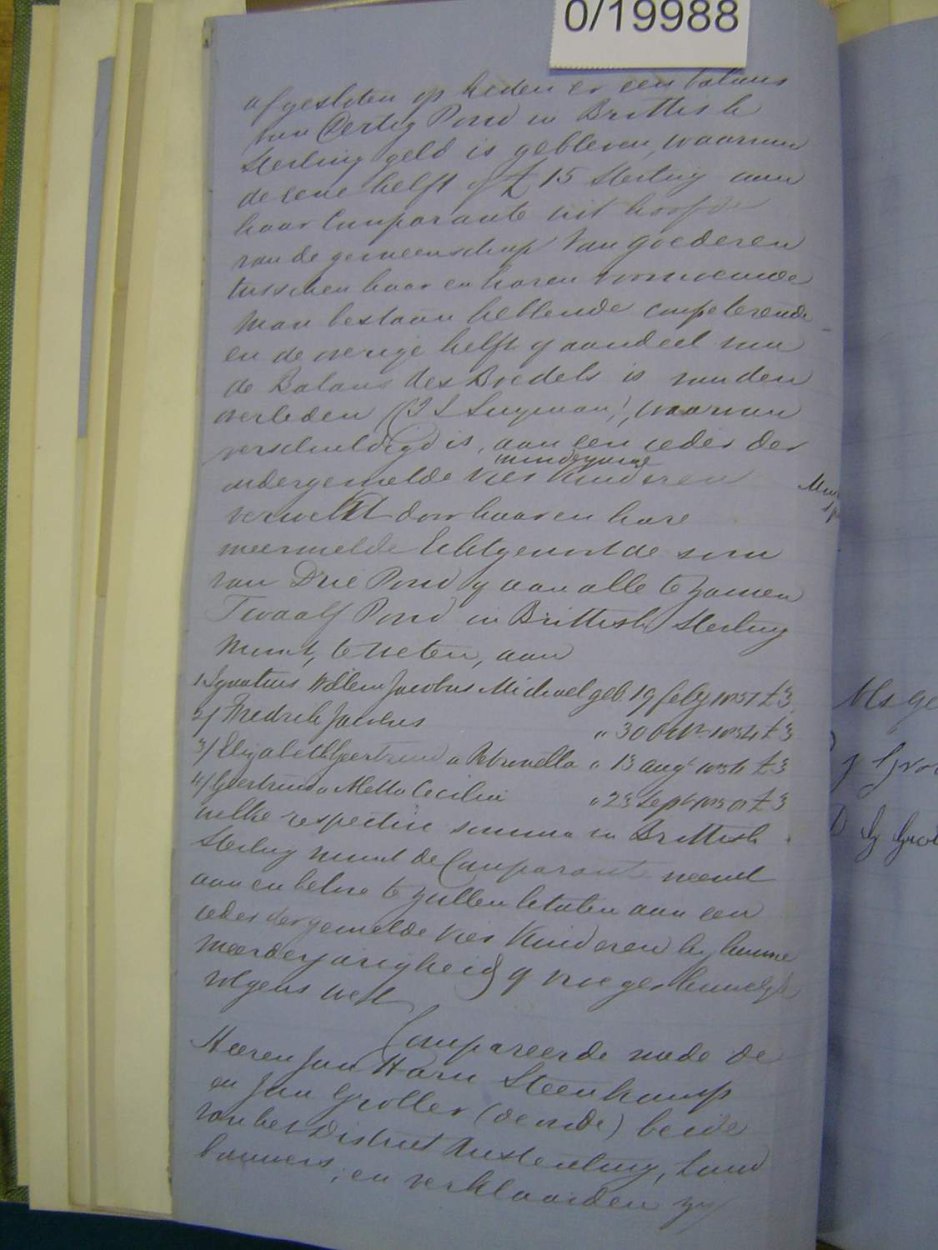 0/19988
afgesloten op heden er een balans
van Dertig Pond in Brittish
Sterling geld is gebleven, waarvan
de eene helft of £15 Sterling aan
haar Comparante uit hoofde
van de gemeenschap van goederen
tusschen haar en haren voornoemde
man bestaan hebbende competerende
en de overige helft of aandeel van
de Balans des Boedels is van den
overleden waarvan
verschuldigd is, aan een ieder der
minderjarige
ondergemelde vier Kinderen
verwekt door haar en hare
meermelde Echtgenoot de som
van Drie Pond of aan alle te zamen
Twaalf Pond in Brittish Sterling
munt, te weten, aan
1/ Ignatius Willem Jacobus Michael geb 19 feby £3
2/ Fredrik Jacobus " 30 £3
3/ Elizabeth Geertruida Petronella " 13 augt £3
4/ Geertruida Metta Cecilia " 23 Sept £3
welke respective somma in Brittish
Sterling munt de Comparant neemt
aan en belove te zullen betalen aan een
ieder der gemelde vier Kinderen by hunne
meerderjarigheid of vroeger huwelyk
volgens wet
Compareerde mede de
Heeren Jan Harm Steenkamp
en Jan Grobler (de oude) beide
van het District Rustenburg, Land
bouwers, en verklaarden zy